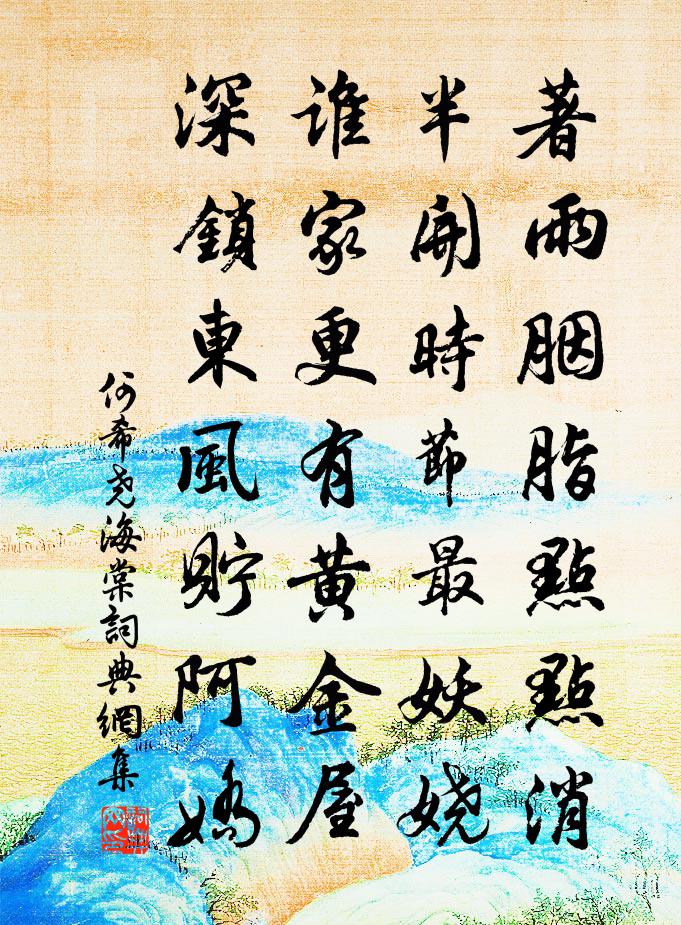 著雨胭脂點點消
半開時節最妖嬈
誰家更有黃金屋
深鎖東風貯阿嬌
何希尧海棠詞典網集